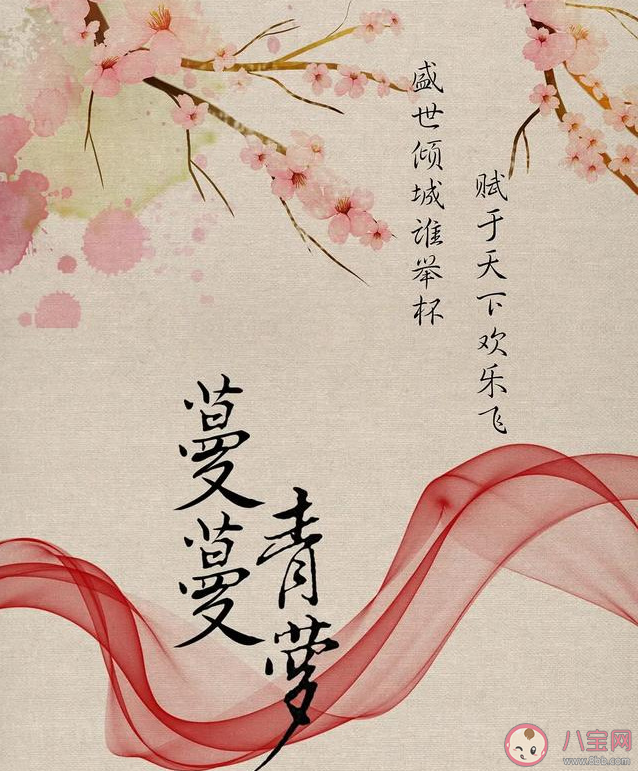 赋于天下欢乐飞
盛世倾城谁举杯
蔓蔓
青萝
八宝网
www.8bb.com